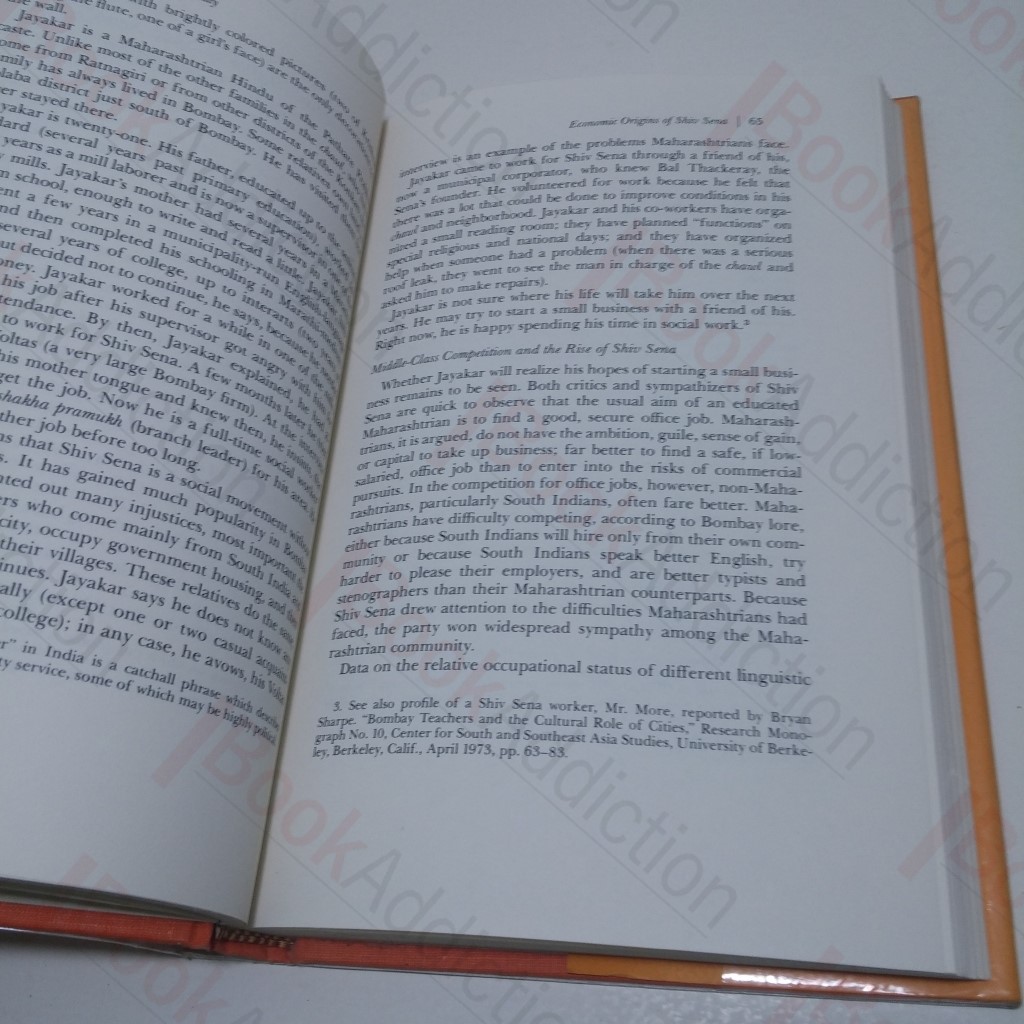 with brightly colored pictures (two of
the flute, one of a girl's face) are the only
the wall.
Jayakar is a Maharashtrian Hindu of the
caste. Unlike most of the other families in the
ome from Ratnagiri or from other districts of the
mily has always lived in Bombay. Some relatives
laba district just south of Bombay. He has visited
er stayed there.
yakar is twenty-one. His father, educated up to the
dard (several years past primary education),
years as a mill laborer and is now a supervisor
mills. Jayakar's mother had several years in a
n school, enough to write and read a little. Jayakar
ent a few years in a municipality-run English
nd then completed his schooling in Marathi
several years of college, up to interarts (two
ut decided not to continue, he says, because he
oney. Jayakar worked for a while in one of the
his job after his supervisor got angry with
tendance. By then, Jayakar explained, he had
to work for Shiv Sena. A few months later he
oltas (a very large Bombay firm). At the
his mother tongue and knew then, he insists,
get the job. Now he is a full-time social worker
shakha pramukh (branch leader) for his area.
ther job before too long.
ns that Shiv Sena is a social movement
s. It has gained much popularity in Bombay
nted out many injustices, most important
ers who come mainly from South India
city, occupy government housing, and
their villages. These relatives do the same
inues. Jayakar says he does not know
ally (except one or two casual
college); in any case, he avows, his
r" in India is a catchall phrase which
ty service, some of which may be highly political.
Economic Origins of Shiv Sena | 65
interview is an example of the problems Maharashtrians face.
Jayakar came to work for Shiv Sena through a friend of his,
now a municipal corporator, who knew Bal Thackeray, the
Sena's founder. He volunteered for work because he felt that
there was a lot that could be done to improve conditions in his
chawl and neighborhood. Jayakar and his co-workers have orga-
nized a small reading room; they have planned "functions" on
special religious and national days; and they have organized
help when someone had a problem (when there was a serious
roof leak, they went to see the man in charge of the chawl and
asked him to make repairs).
Jayakar is not sure where his life will take him over the next
years. He may try to start a small business with a friend of his.
Right now, he is happy spending his time in social work.³
Middle-Class Competition and the Rise of Shiv Sena
Whether Jayakar will realize his hopes of starting a small busi-
ness remains to be seen. Both critics and sympathizers of Shiv
Sena are quick to observe that the usual aim of an educated
Maharashtrian is to find a good, secure office job. Maharash-
trians, it is argued, do not have the ambition, guile, sense of gain,
or capital to take up business; far better to find a safe, if low-
salaried, office job than to enter into the risks of commercial
pursuits. In the competition for office jobs, however, non-Maha-
rashtrians, particularly South Indians, often fare better. Maha-
rashtrians have difficulty competing, according to Bombay lore,
either because South Indians will hire only from their own com-
munity or because South Indians speak better English, try
harder to please their employers, and are better typists and
stenographers than their Maharashtrian counterparts. Because
Shiv Sena drew attention to the difficulties Maharashtrians had
faced, the party won widespread sympathy among the Maha-
rashtrian community.
Data on the relative occupational status of different linguistic
3. See also profile of a Shiv Sena worker, Mr. More, reported by Bryan
Sharpe. "Bombay Teachers and the Cultural Role of Cities," Research Mono-
graph No. 10, Center for South and Southeast Asia Studies, University of Berke-
ley, Berkeley, Calif., April 1973, pp. 63–83.
BookAddiction